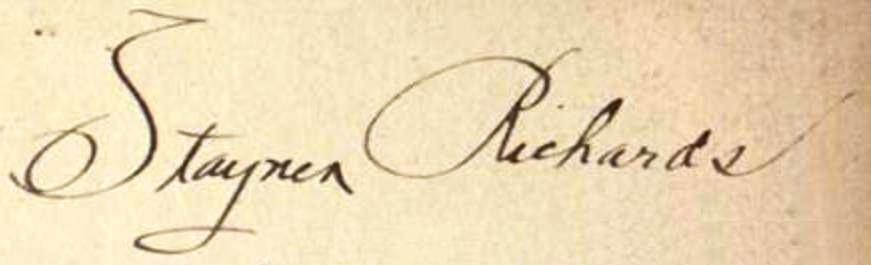 Stayner Richards